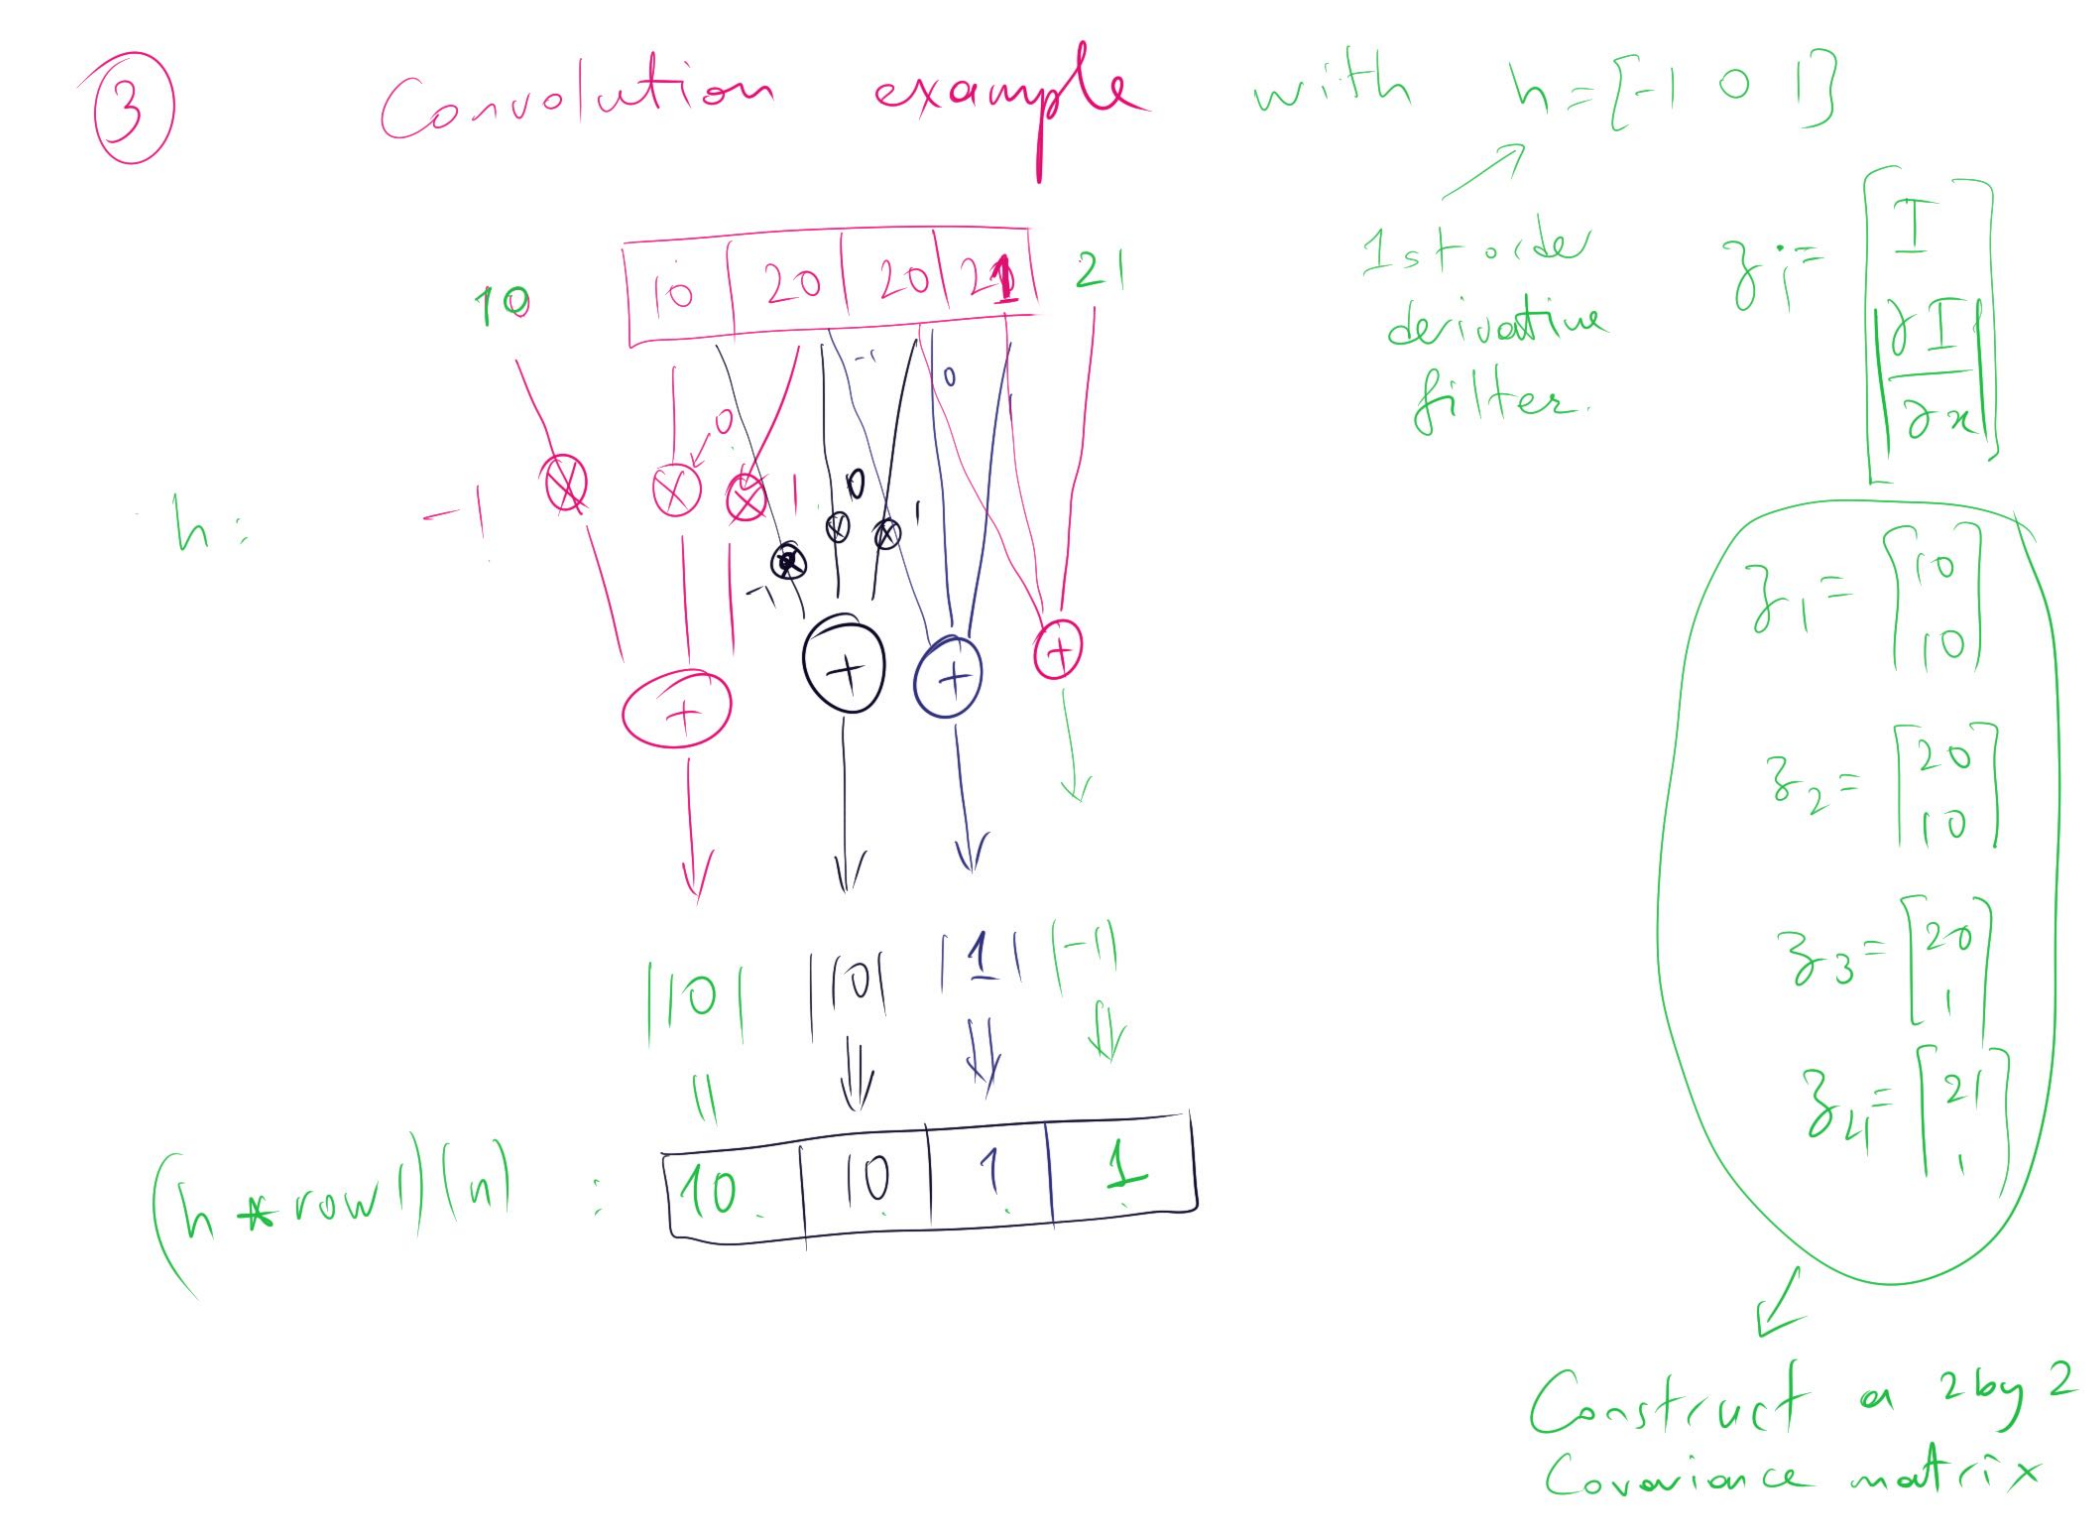 3 Convolution example with h=[-1 0 1]
1st order
derivative
filter.
10 10 20 20 21 21
-1 0
0
h: -1 1 0 1
-1
+ + + +
|10| |10| |1| |-1|
(h * row1)(n) : 10 10 1 1
zi = [ I
|∂I
∂x|]
z1 = [10
10]
z2 = [20
10]
z3 = [20
1]
z4 = [21
1]
Construct a 2 by 2
Covariance matrix